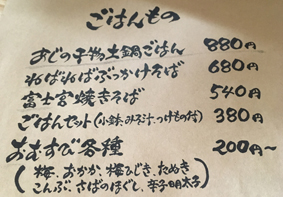 ごはんもの
あじの干物土鍋ごはん 880円
ねばねばぶっかけそば 680円
富士宮焼きそば 540円
ごはんセット(小鉢、みそ汁、つけもの付) 380円
おむすび各種 200円〜
(梅、おかか、梅ひじき、たぬき
こんぶ、さばのほぐし、辛子明太子)